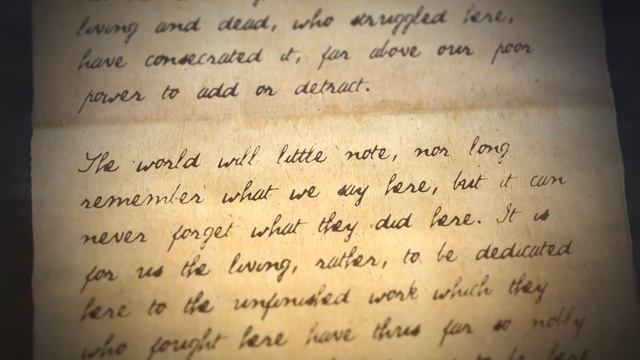 living and dead, who struggled here,
have consecrated it, far above our poor
power to add or detract.
The world will little note, nor long
remember what we say here, but it can
never forget what they did here. It is
for us the living, rather, to be dedicated
here to the unfinished work which they
who fought here have thus far so nobly